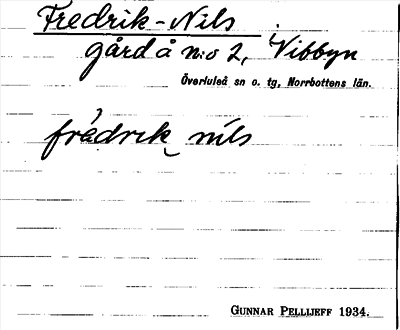 Fredrik-Nils
gård å n:o 2, Vibbyn
Överluleå sn o. tg, Norrbottens län.
frédrik nils
GUNNAR PELLIJEFF 1934.